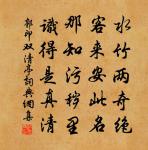 水竹两奇绝
客来安此名
那知污秽里
识得是真清
郭印双清亭词典网集